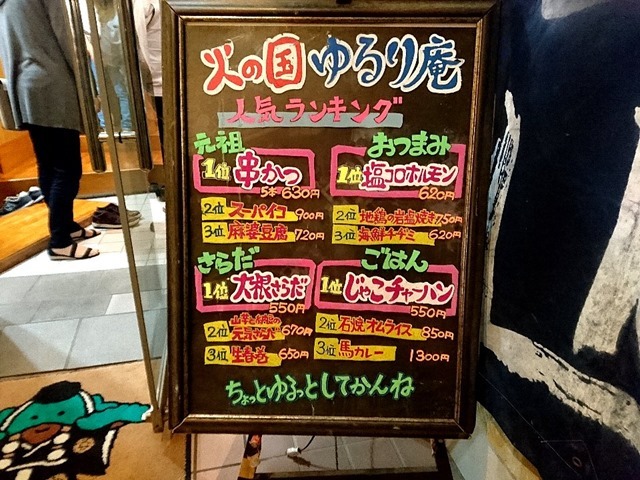 火の国 ゆるり庵
人気ランキング
元祖
1位 串かつ
5本 630円
2位 スーパイコ 900円
3位 麻婆豆腐 720円
おつまみ
1位 塩コロホルモン
620円
2位 地鶏の岩塩焼き 750円
3位 海鮮チヂミ 620円
さらだ
1位 大根さらだ
550円
2位 元気さらだ 670円
3位 生春巻 650円
ごはん
1位 じゃこチャーハン
550円
2位 石焼オムライス 850円
3位 馬カレー 1300円
ちょっとゆるっとしてかんね